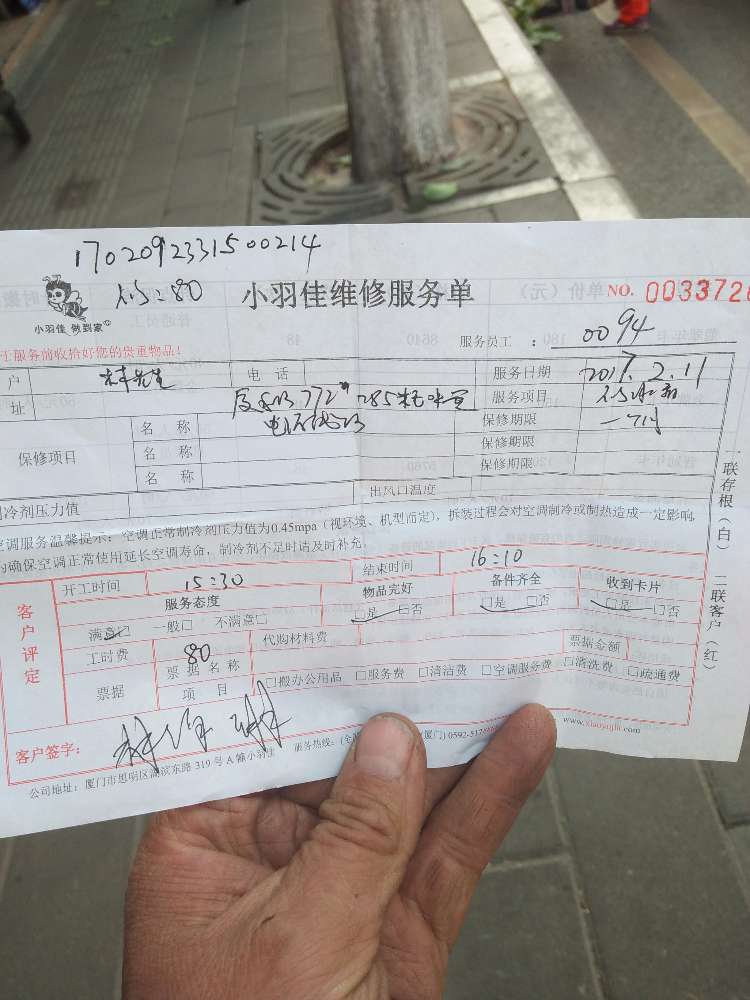 1702092331500214
80
小羽佳维修服务单 NO. 0033726
小羽佳 做到家
服务员工 : 0094
士服务前收拾好您的贵重物品!
户 林先生 电 话 服务日期 2017.2.11
址 服务项目
保修项目 名 称 保修期限 一个月
名 称 保修期限
名 称 保修期限
制冷剂压力值 出风口温度
空调服务温馨提示:空调正常制冷剂压力值为0.45mpa(视环境、机型而定),拆装过程会对空调制冷或制热造成一定影响,
为确保空调正常使用延长空调寿命,制冷剂不足时请及时补充。
一联存根(白) 二联客户(红)
客户评定
开工时间 15:30 结束时间 16:10
服务态度 物品完好 备件齐全 收到卡片
满意□ 一般□ 不满意□ □是 □否 □是 □否 □是 □否
工时费 80 代购材料费
票据 票据名称 票据金额
项 目 □搬办公用品 □服务费 □清洁费 □空调服务费 □清洗费 □疏通费
客户签字:
www.xiaoyujia.com
公司地址:厦门市思明区湖滨东路 319 号 A 幢小羽佳 服务热线:(全 厦门) 0592-517